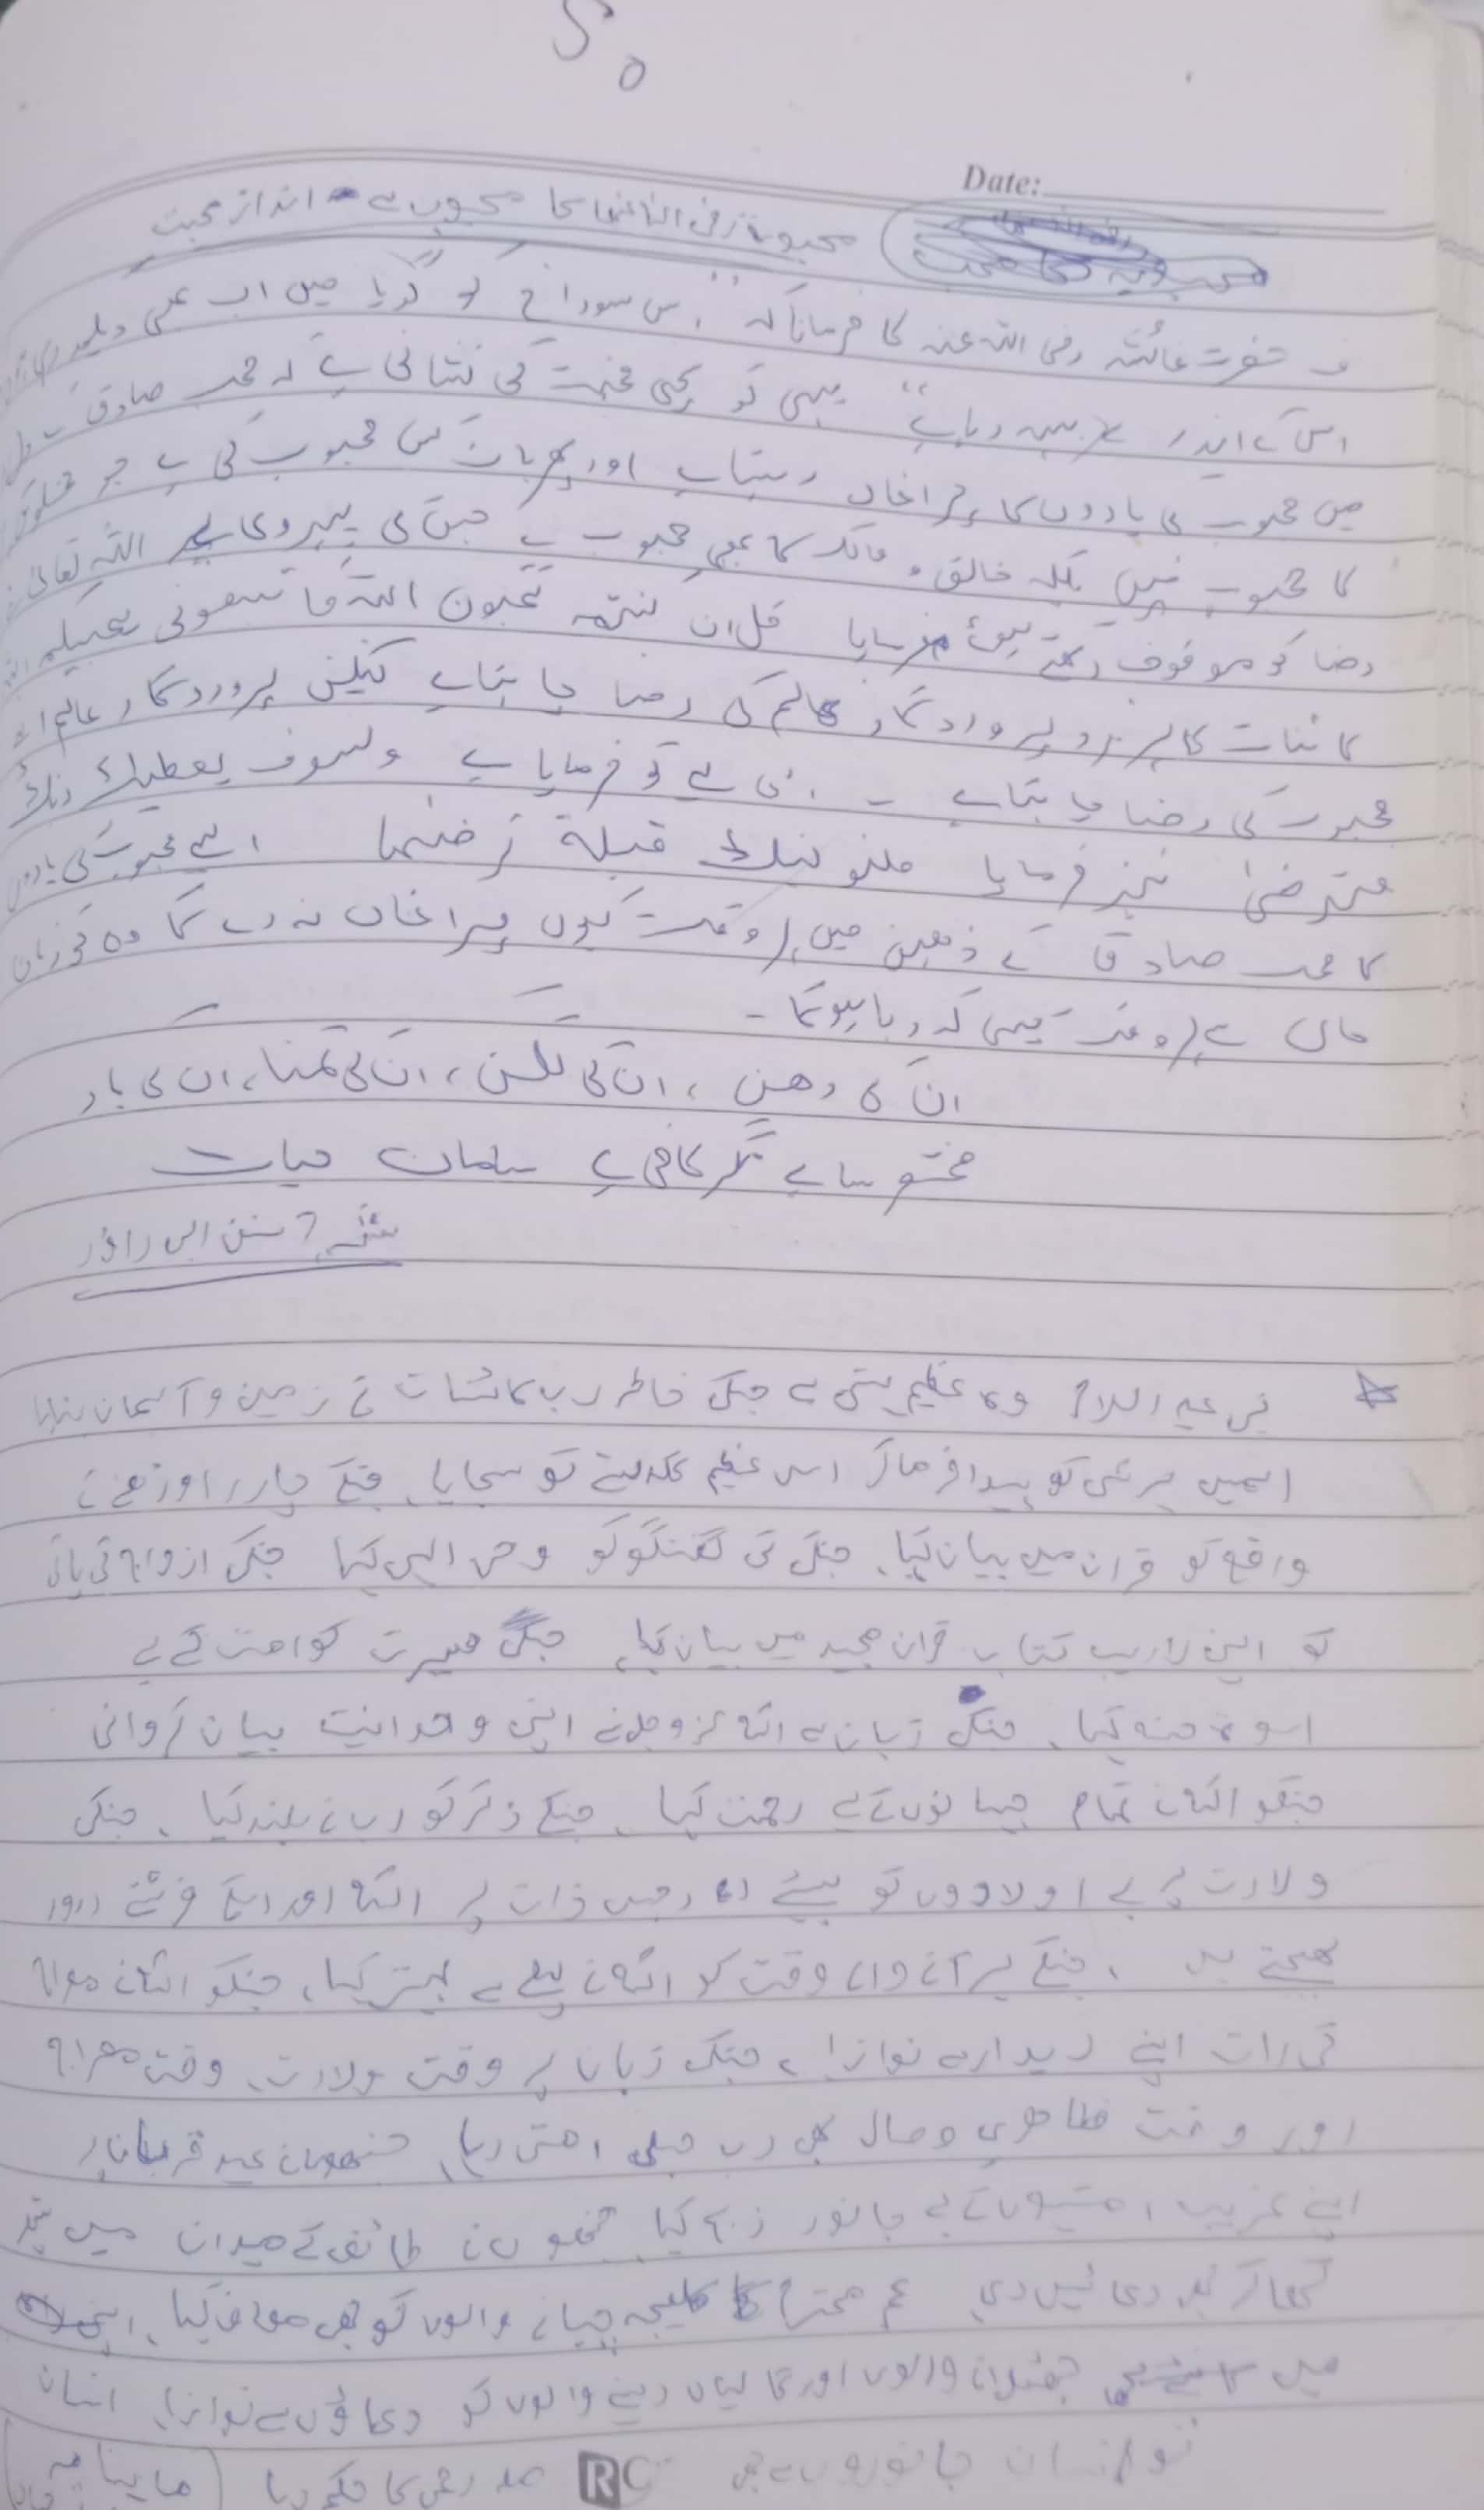 Date:
محبوبہ رضی اللہ عنھا کا محبوب سے انداز محبت
حضرت عائشہ رضی اللہ عنہ کا فرمانا کہ اس سوراخ کو گویا میں اب بھی دیکھ رہی
اس کے اندر سے رہا ہے یہی تو سچی محبت کی نشانی ہے کہ محب صادق
میں محبوب کی یادوں کا چراغاں رہتا ہے اور پھر بات کس محبوب کی ہے جو مخلوق
کا محبوب نہیں بلکہ خالق و مالک کا بھی محبوب ہے جس کی پیروی پر اللہ تعالی
رضا کو موقوف رکھتے ہوئے فرمایا قل ان کنتم تحبون اللہ فاتبعونی یحببکم
کائنات کا ہر فرد پروردگار عالم کی رضا چاہتا ہے لیکن پروردگار عالم
محبوب کی رضا چاہتا ہے ۔ اسی لیے تو فرمایا ہے ولسوف یعطیک ربک
فترضیٰ نیز فرمایا فلنولینک قبلۃ ترضھا ایسے محبوب کی یادوں
کا محب صادق کے ذہن میں ہر وقت کیوں چراغاں نہ رہے گا وہ تو زبان
حال سے ہر وقت یہی کہ رہا ہوگا ۔
ان کی دھن ، ان کی لگن ، ان کی تمنا ، ان کی یاد
مختصر سا ہے مگر کافی ہے سامان حیات
سنن ابی داؤد
نبی علیہ السلام وہ عظیم ہستی ہے جنکی خاطر رب کائنات نے زمین و آسمان بنایا
اسمیں ہر شی کو پیدا فرما کر اس عظیم گلدستے کو سجایا، جنکے چادر اوڑھنے کے
واقع کو قران میں بیان کیا، جنکی کی گفتگو کو وحی الہی کہا جنکی ازواج کی پاکی
کو اپنی لاریب کتاب قران مجید میں بیان کیا، جنکی سیرت کو امت کے لیے
اسوۃ حسنہ کہا، جنکی زبان سے اللہ عزوجل نے اپنی وحدانیت بیان کروائی
جنکو اللہ نے تمام جہانوں کے لیے رحمت کہا، جنکے ذکر کو رب نے بلند کیا، جنکی
ولادت پر بے اولادوں کو بیٹے دئے، جس ذات پر اللہ اور اسکے فرشتے درود
بھیجتے ہیں ، جنکے ہر آنے والے وقت کو اللہ نے پہلے سے بہتر کیا، جنکو اللہ نے معراج
کی رات اپنے دیدار سے نوازا، جنکی زبان پر وقت ولادت، وقت معراج
اور وقت ظاھری وصال بھی رب ھبلی امتی رہا، جنھوں نے عید قربان پر
اپنے غریب امتیوں کے لیے جانور ذبح کیا، جنھوں نے طائف کے میدان میں پتھر
کھا کر بھی دعائیں دی، عم محترم کا کلیجہ چبانے والوں کو بھی معاف کیا،
میں جھٹلانے والوں اور گالیاں دینے والوں کو دعاؤں سے نوازا، انسان
تو انسان جانوروں سے بھی صلہ رحمی کا حکم دیا (ماہنامہ